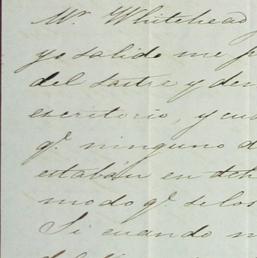 Mr. Whitehead
yo salido me
del sastre y de
escritorio, y cu
q.e ninguno d
estaban en dch
modo q.e se los
Si cuando n